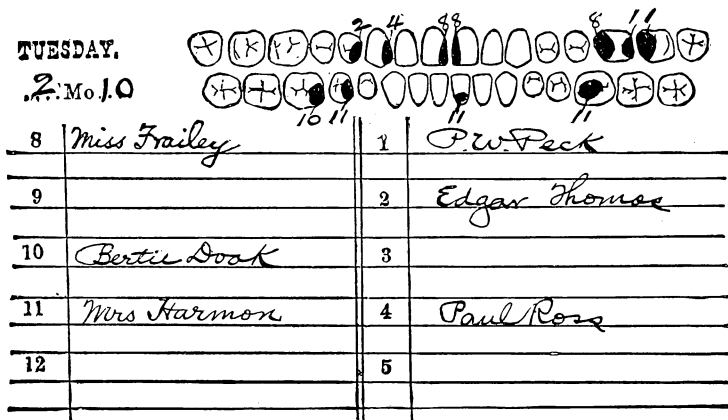 2 4 8 8 8 11 11
TUESDAY.
2 Mo. 10
10 11 11 11
8 Miss Frailey 1 P.W. Peck
9 2 Edgar Thomas
10 Bertie Doak 3
11 Mrs Harmon 4 Paul Ross
12 5